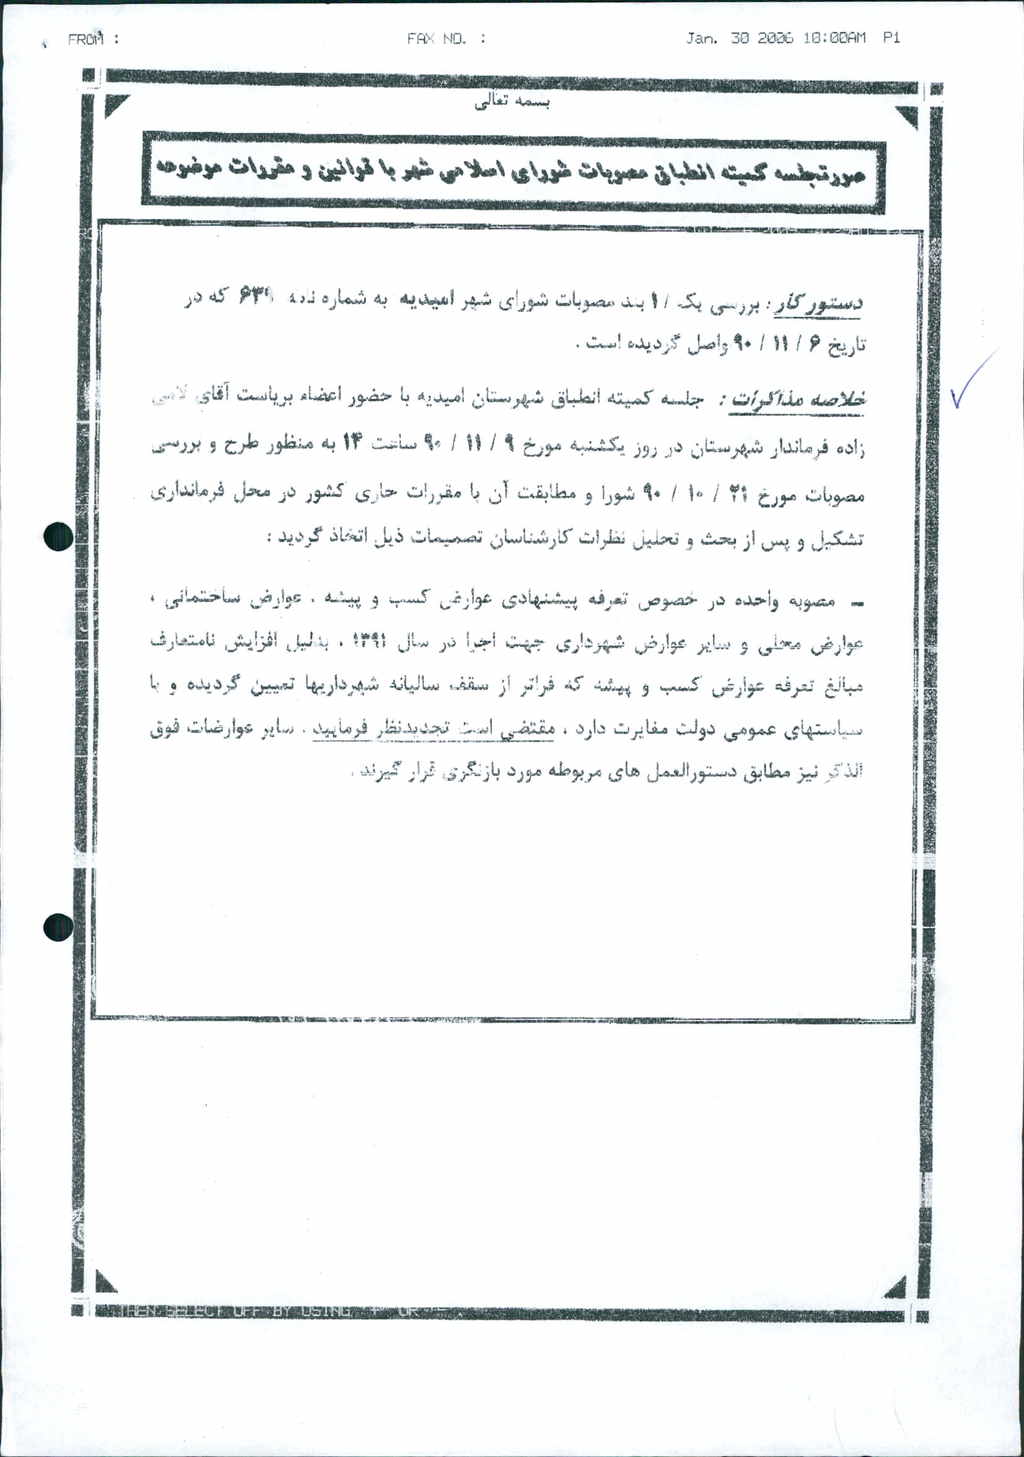 FROM :
FAX NO. :
Jan. 30 2006 10:00AM P1
بسمه تعالی
صورتجلسه کمیته انطباق مصوبات شورای اسلامی شهر با قوانین و مقررات موضوعه
دستور کار : بررسی یک / ۱ بند مصوبات شورای شهر امیدیه به شماره نامه ۶۳۹ که در
تاریخ ۶ / ۱۱ / ۹۰ واصل گردیده است .
خلاصه مذاکرات : جلسه کمیته انطباق شهرستان امیدیه با حضور اعضاء بریاست آقای
زاده فرماندار شهرستان در روز یکشنبه مورخ ۹ / ۱۱ / ۹۰ ساعت ۱۴ به منظور طرح و بررسی
مصوبات مورخ ۲۱ / ۱۰ / ۹۰ شورا و مطابقت آن با مقررات جاری کشور در محل فرمانداری
تشکیل و پس از بحث و تحلیل نظرات کارشناسان تصمیمات ذیل اتخاذ گردید :
– مصوبه واحده در خصوص تعرفه پیشنهادی عوارض کسب و پیشه ، عوارض ساختمانی ،
عوارض محلی و سایر عوارض شهرداری جهت اجرا در سال ۱۳۹۱ ، بدلیل افزایش نامتعارف
مبالغ تعرفه عوارض کسب و پیشه که فراتر از سقف سالیانه شهرداریها تعیین گردیده و با
سیاستهای عمومی دولت مغایرت دارد ، مقتضی است تجدیدنظر فرمایید . سایر عوارضات فوق
الذکر نیز مطابق دستورالعمل های مربوطه مورد بازنگری قرار گیرند .
THEN SELECT OFF BY USING + OR